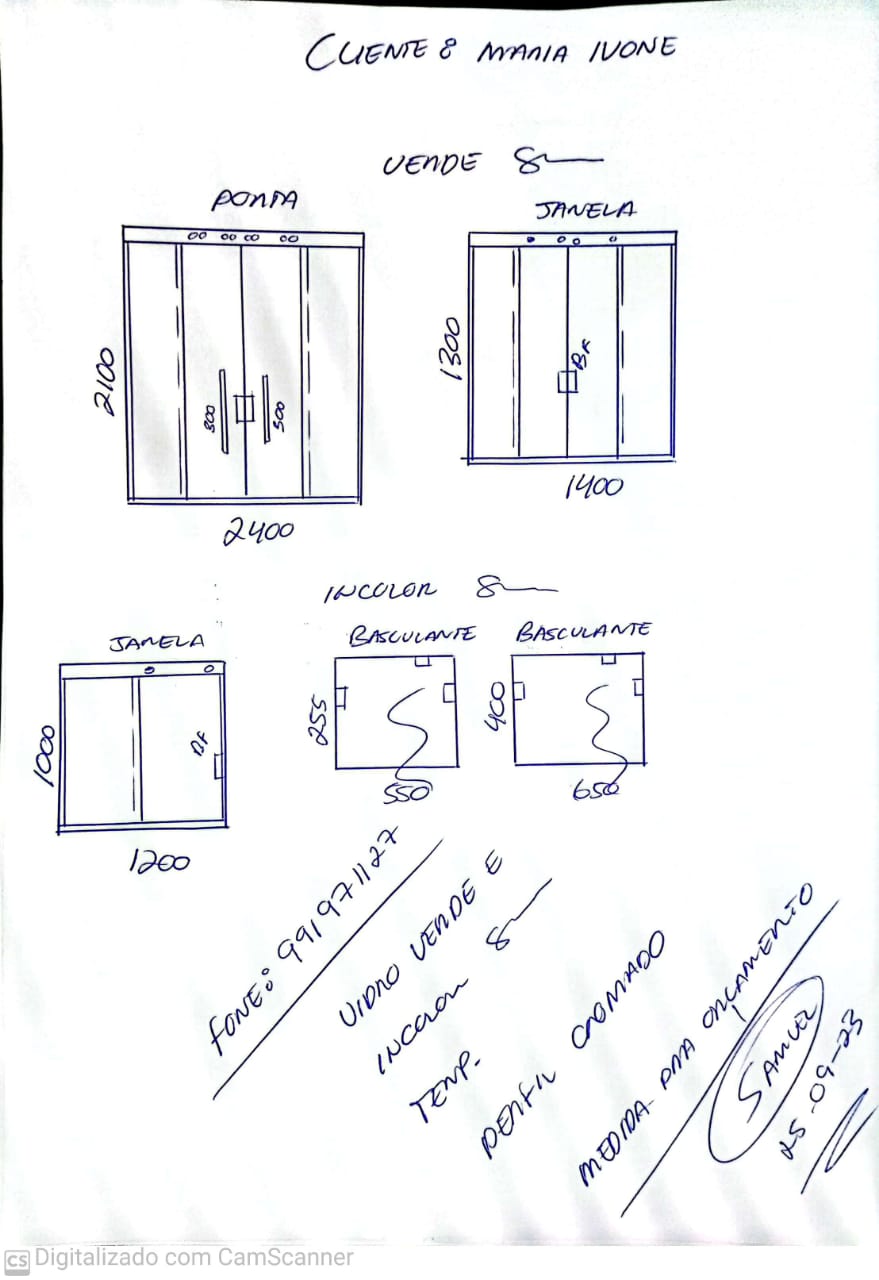 CLIENTE: MARIA IVONE
VERDE 8
PORTA
JANELA
2100
300
500
2400
1300
BF
1400
INCOLOR 8
JANELA
BASCULANTE
BASCULANTE
1000
BF
1200
255
550
400
650
FONE: 991971127
VIDRO VERDE E
INCOLOR 8
TEMP.
PERFIL CROMADO
MEDIDA PRA ORÇAMENTO
SAMUEL
25-09-23
CS Digitalizado com CamScanner